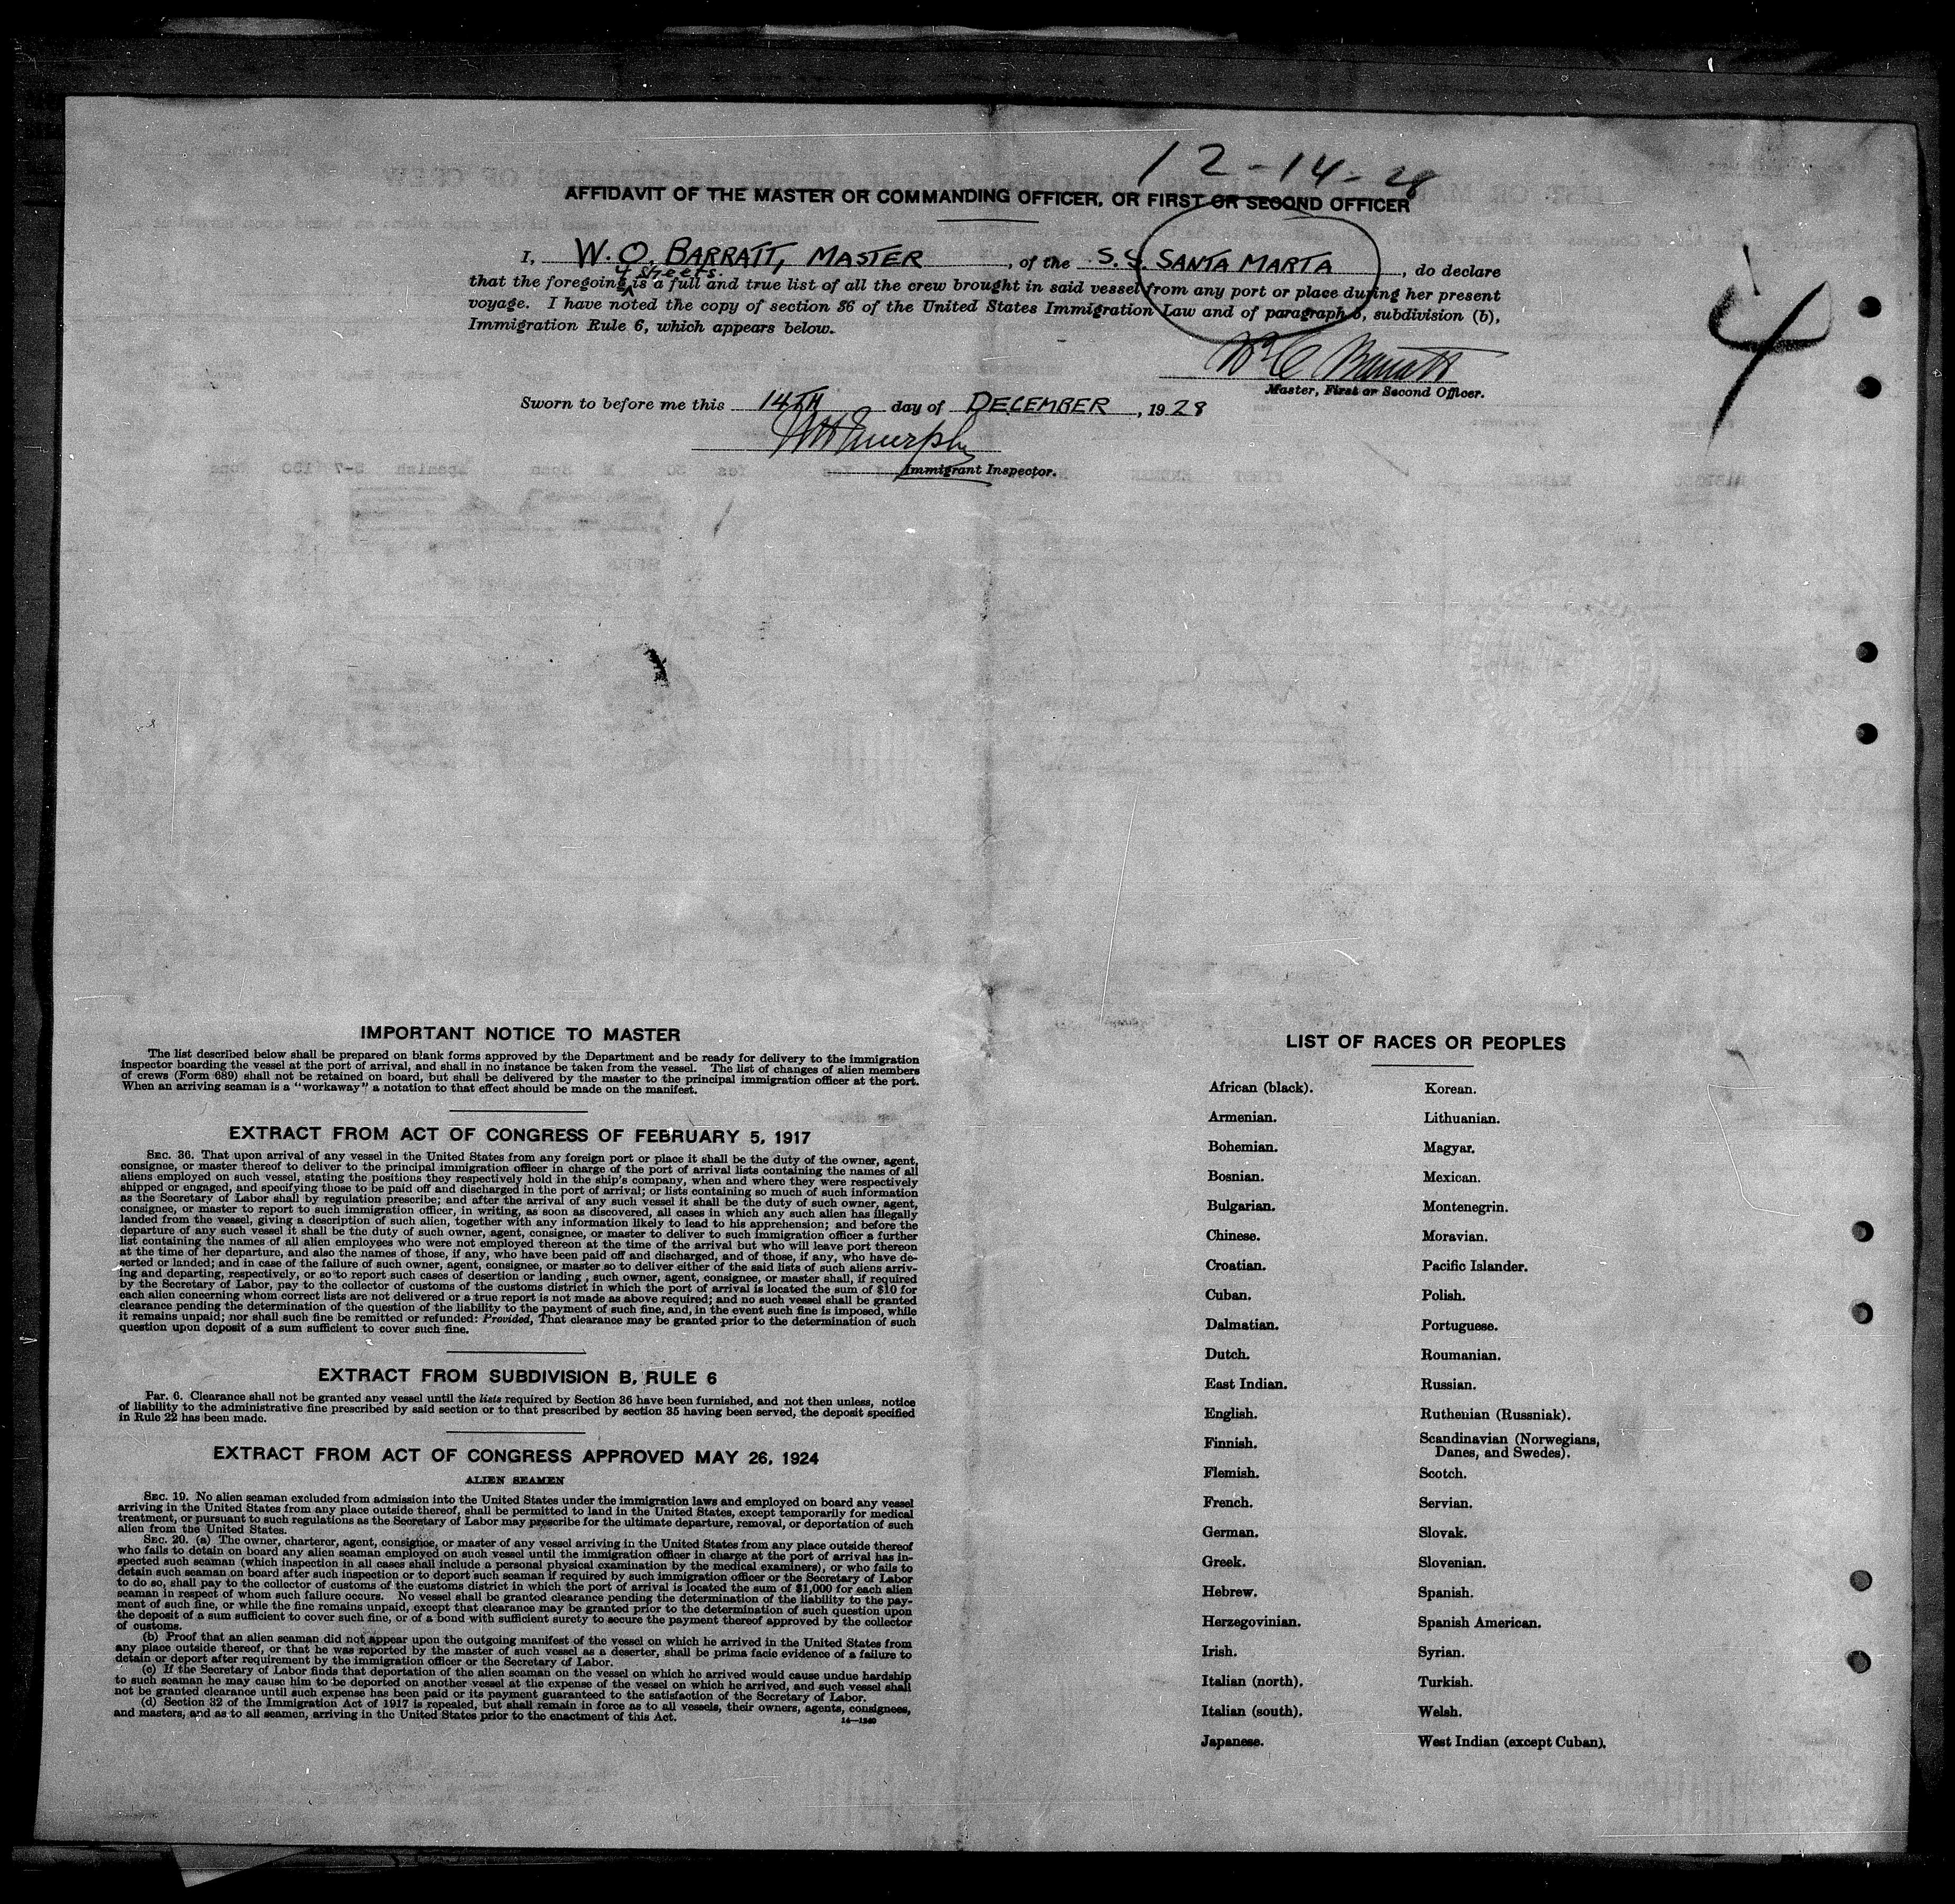 12-14-28
AFFIDAVIT OF THE MASTER OR COMMANDING OFFICER, OR FIRST OR SECOND OFFICER
I, W. O. BARRATT, MASTER, of the S.S. SANTA MARTA, do declare
4 sheets.
that the foregoing is a full and true list of all the crew brought in said vessel from any port or place during her present
voyage. I have noted the copy of section 36 of the United States Immigration Law and of paragraph 6, subdivision (b),
Immigration Rule 6, which appears below.
4
Master, First or Second Officer.
Sworn to before me this 14TH day of DECEMBER, 1928
Immigrant Inspector.
IMPORTANT NOTICE TO MASTER
The list described below shall be prepared on blank forms approved by the Department and be ready for delivery to the immigration
inspector boarding the vessel at the port of arrival, and shall in no instance be taken from the vessel. The list of changes of alien members
of crews (Form 689) shall not be retained on board, but shall be delivered by the master to the principal immigration officer at the port.
When an arriving seaman is a "workaway" a notation to that effect should be made on the manifest.
EXTRACT FROM ACT OF CONGRESS OF FEBRUARY 5, 1917
SEC. 36. That upon arrival of any vessel in the United States from any foreign port or place it shall be the duty of the owner, agent,
consignee, or master thereof to deliver to the principal immigration officer in charge of the port of arrival lists containing the names of all
aliens employed on such vessel, stating the positions they respectively hold in the ship's company, when and where they were respectively
shipped or engaged, and specifying those to be paid off and discharged in the port of arrival; or lists containing so much of such information
as the Secretary of Labor shall by regulation prescribe; and after the arrival of any such vessel it shall be the duty of such owner, agent,
consignee, or master to report to such immigration officer, in writing, as soon as discovered, all cases in which any such alien has illegally
landed from the vessel, giving a description of such alien, together with any information likely to lead to his apprehension; and before the
departure of any such vessel it shall be the duty of such owner, agent, consignee, or master to deliver to such immigration officer a further
list containing the names of all alien employees who were not employed thereon at the time of the arrival but who will leave port thereon
at the time of her departure, and also the names of those, if any, who have been paid off and discharged, and of those, if any, who have de-
serted or landed; and in case of the failure of such owner, agent, consignee, or master so to deliver either of the said lists of such aliens arriv-
ing and departing, respectively, or so to report such cases of desertion or landing, such owner, agent, consignee, or master shall, if required
by the Secretary of Labor, pay to the collector of customs of the customs district in which the port of arrival is located the sum of $10 for
each alien concerning whom correct lists are not delivered or a true report is not made as above required; and no such vessel shall be granted
clearance pending the determination of the question of the liability to the payment of such fine, and, in the event such fine is imposed, while
it remains unpaid; nor shall such fine be remitted or refunded: Provided, That clearance may be granted prior to the determination of such
question upon deposit of a sum sufficient to cover such fine.
EXTRACT FROM SUBDIVISION B, RULE 6
Par. 6. Clearance shall not be granted any vessel until the lists required by Section 36 have been furnished, and not then unless, notice
of liability to the administrative fine prescribed by said section or to that prescribed by section 35 having been served, the deposit specified
in Rule 22 has been made.
EXTRACT FROM ACT OF CONGRESS APPROVED MAY 26, 1924
ALIEN SEAMEN
SEC. 19. No alien seaman excluded from admission into the United States under the immigration laws and employed on board any vessel
arriving in the United States from any place outside thereof, shall be permitted to land in the United States, except temporarily for medical
treatment, or pursuant to such regulations as the Secretary of Labor may prescribe for the ultimate departure, removal, or deportation of such
alien from the United States.
SEC. 20. (a) The owner, charterer, agent, consignee, or master of any vessel arriving in the United States from any place outside thereof
who fails to detain on board any alien seaman employed on such vessel until the immigration officer in charge at the port of arrival has in-
spected such seaman (which inspection in all cases shall include a personal physical examination by the medical examiners), or who fails to
detain such seaman on board after such inspection or to deport such seaman if required by such immigration officer or the Secretary of Labor
to do so, shall pay to the collector of customs of the customs district in which the port of arrival is located the sum of $1,000 for each alien
seaman in respect of whom such failure occurs. No vessel shall be granted clearance pending the determination of the liability to the pay-
ment of such fine, or while the fine remains unpaid, except that clearance may be granted prior to the determination of such question upon
the deposit of a sum sufficient to cover such fine, or of a bond with sufficient surety to secure the payment thereof approved by the collector
of customs.
(b) Proof that an alien seaman did not appear upon the outgoing manifest of the vessel on which he arrived in the United States from
any place outside thereof, or that he was reported by the master of such vessel as a deserter, shall be prima facie evidence of a failure to
detain or deport after requirement by the immigration officer or the Secretary of Labor.
(c) If the Secretary of Labor finds that deportation of the alien seaman on the vessel on which he arrived would cause undue hardship
to such seaman he may cause him to be deported on another vessel at the expense of the vessel on which he arrived, and such vessel shall
not be granted clearance until such expense has been paid or its payment guaranteed to the satisfaction of the Secretary of Labor.
(d) Section 32 of the Immigration Act of 1917 is repealed, but shall remain in force as to all vessels, their owners, agents, consignees,
and masters, and as to all seamen, arriving in the United States prior to the enactment of this Act.
14—1240
LIST OF RACES OR PEOPLES
African (black). Korean.
Armenian. Lithuanian.
Bohemian. Magyar.
Bosnian. Mexican.
Bulgarian. Montenegrin.
Chinese. Moravian.
Croatian. Pacific Islander.
Cuban. Polish.
Dalmatian. Portuguese.
Dutch. Roumanian.
East Indian. Russian.
English. Ruthenian (Russniak).
Finnish. Scandinavian (Norwegians,
Danes, and Swedes).
Flemish. Scotch.
French. Servian.
German. Slovak.
Greek. Slovenian.
Hebrew. Spanish.
Herzegovinian. Spanish American.
Irish. Syrian.
Italian (north). Turkish.
Italian (south). Welsh.
Japanese. West Indian (except Cuban).